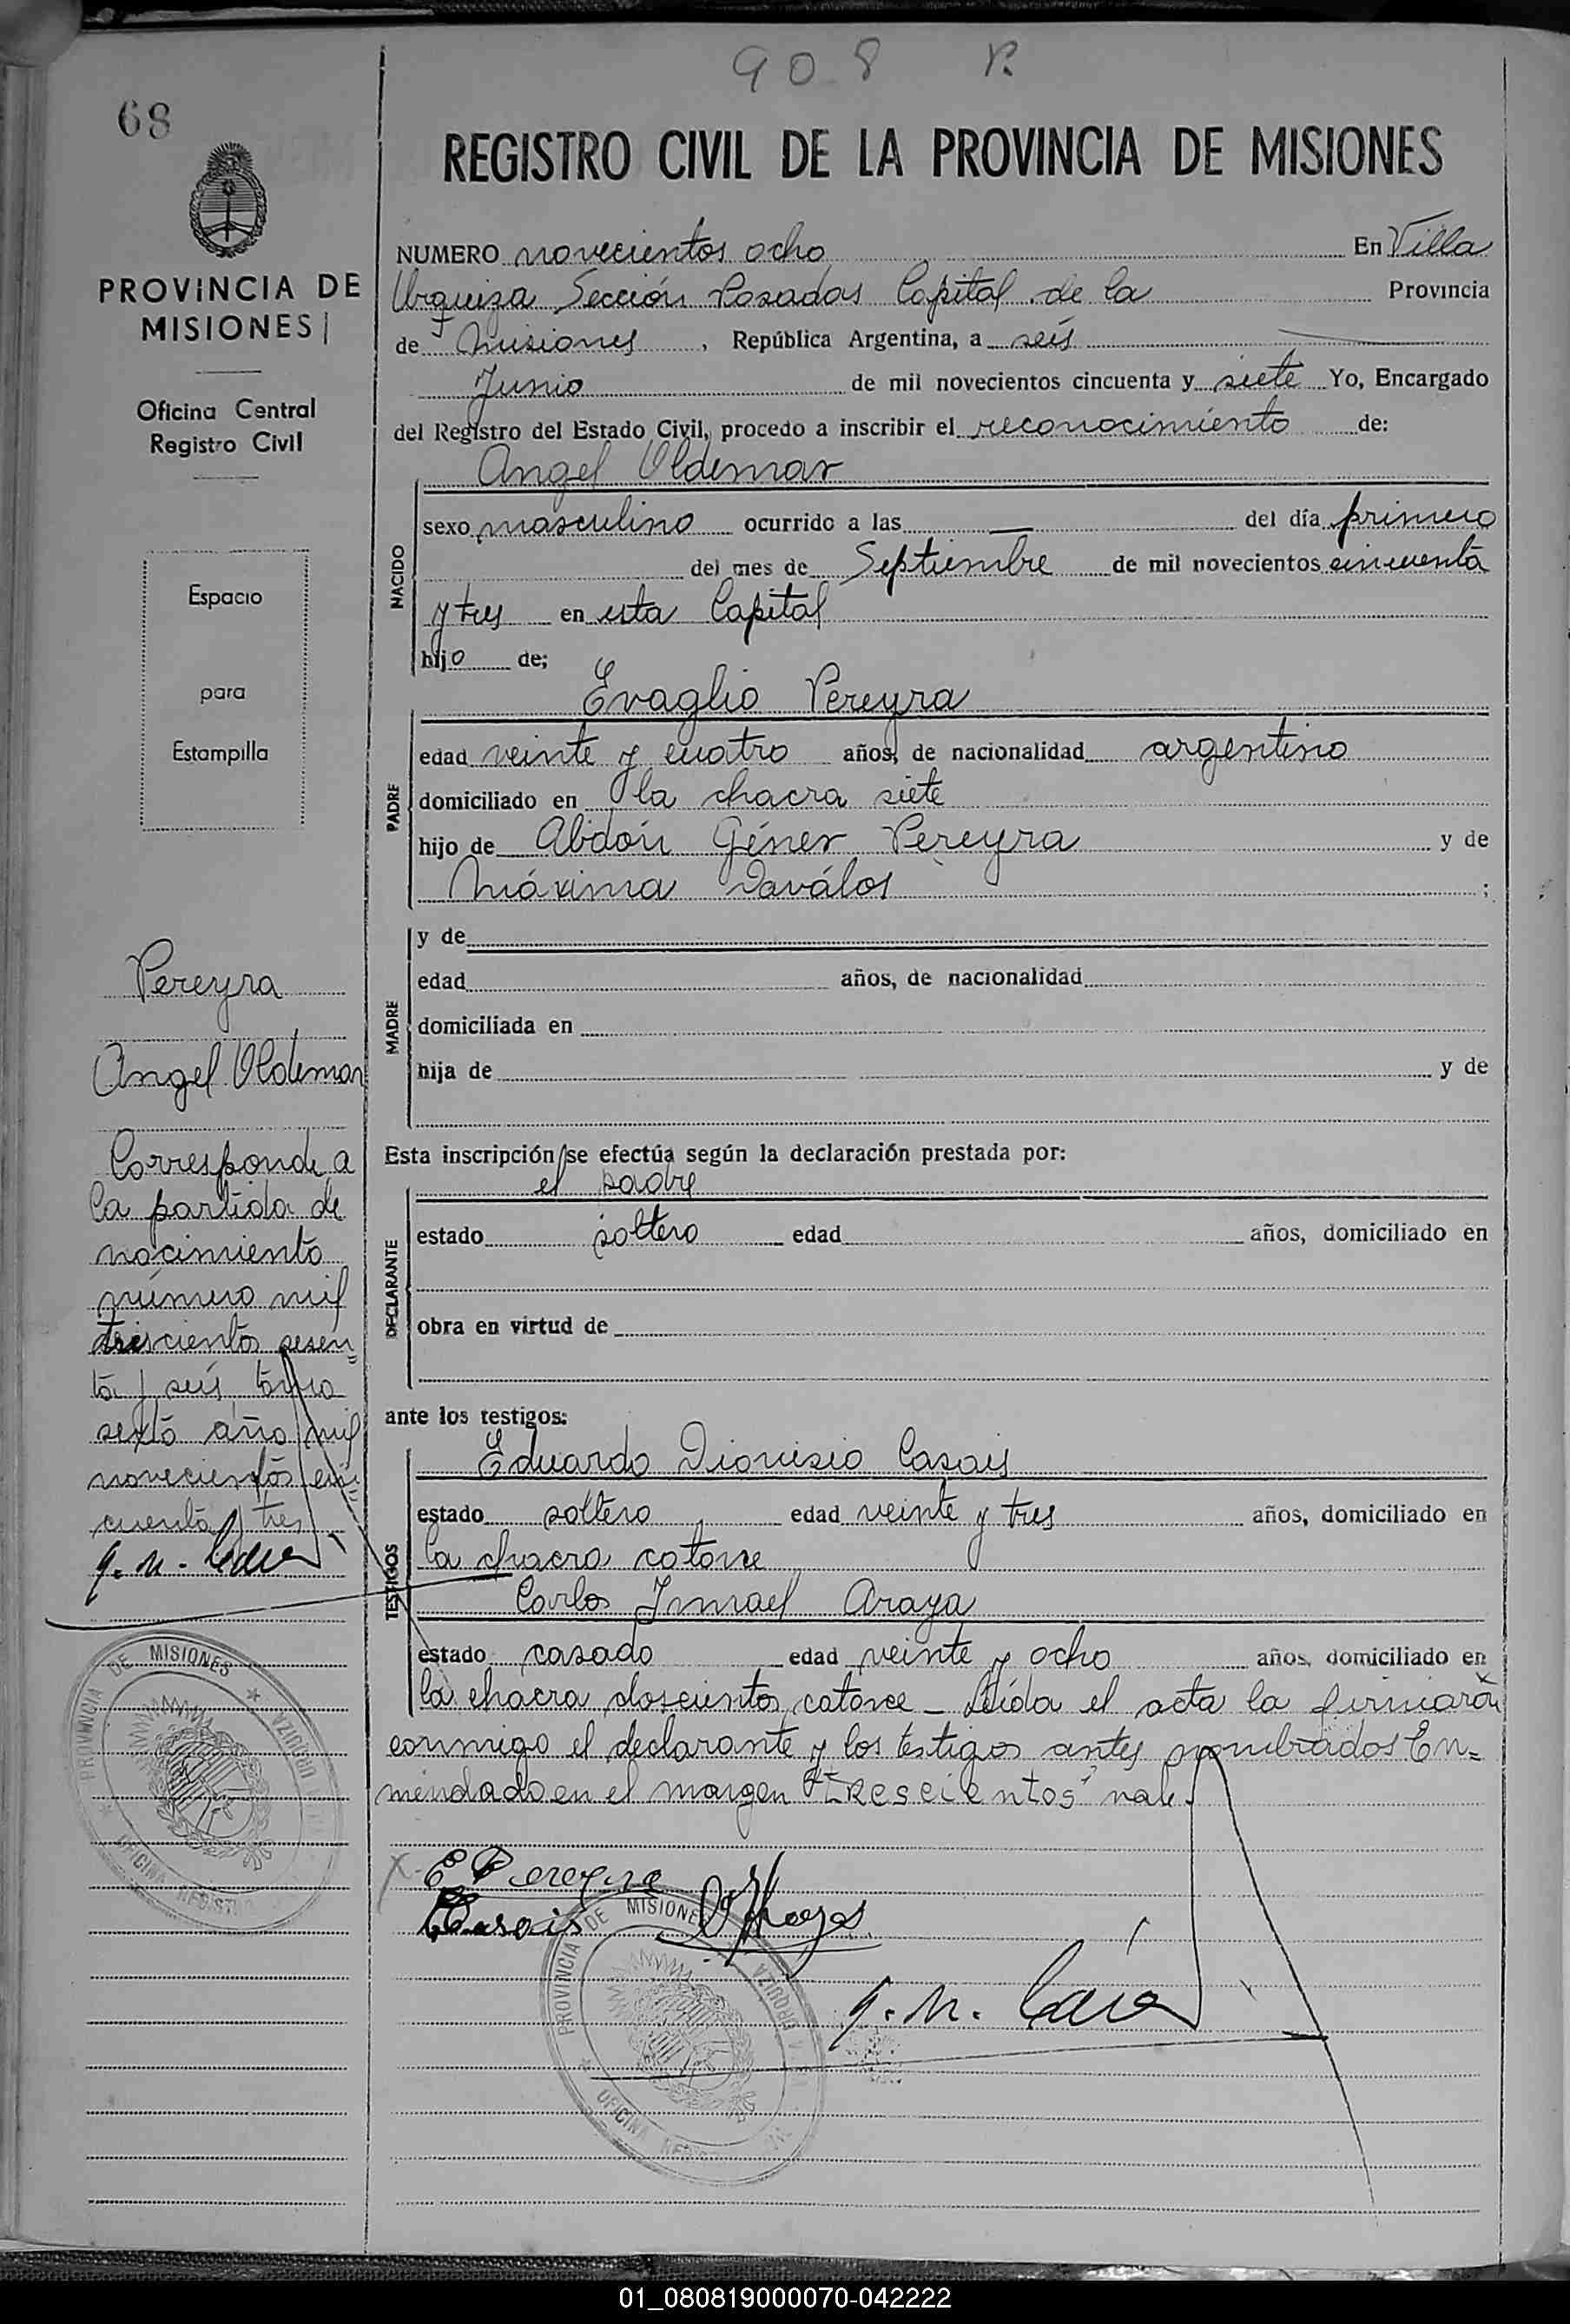 908 R.
68
REGISTRO CIVIL DE LA PROVINCIA DE MISIONES
PROVINCIA DE
MISIONES
Oficina Central
Registro Civil
Espacio
para
Estampilla
NUMERO novecientos ocho En Villa
Urquiza Sección Posadas Capital de la Provincia
de Misiones, República Argentina, a seis
Junio de mil novecientos cincuenta y siete Yo, Encargado
del Registro del Estado Civil, procedo a inscribir el reconocimiento de:
Angel Oldemar
NACIDO
sexo masculino ocurrido a las — del día primero
del mes de Septiembre de mil novecientos cincuenta
y tres en esta Capital
hijo de;
Evaglio Pereyra
PADRE
edad veinte y cuatro años, de nacionalidad argentino
domiciliado en la chacra siete
hijo de Abdón Géner Pereyra y de
Máxima Daválos ;
MADRE
y de
edad años, de nacionalidad
domiciliada en
hija de y de
Esta inscripción se efectúa según la declaración prestada por:
el padre
DECLARANTE
estado soltero edad años, domiciliado en
obra en virtud de
ante los testigos:
Eduardo Dionisio Casais
TESTIGOS
estado soltero edad veinte y tres años, domiciliado en
la chacra catorce
Carlos Ismael Araya
estado casado edad veinte y ocho años, domiciliado en
la chacra doscientos catorce _ Leída el acta la firmaron
conmigo el declarante y los testigos antes nombrados En=
mendado en el margen "trescientos" vale.
E Pereyra
Casais
Pereyra
Angel Oldemar
Corresponde a
la partida de
nacimiento
número mil
trescientos sesen=
ta y seis tomo
sexto año mil
novecientos cin=
cuenta y tres
PROVINCIA DE MISIONES
OFICINA
URQUIZA
PROVINCIA DE MISIONES
OFICINA
URQUIZA
01_080819000070-042222